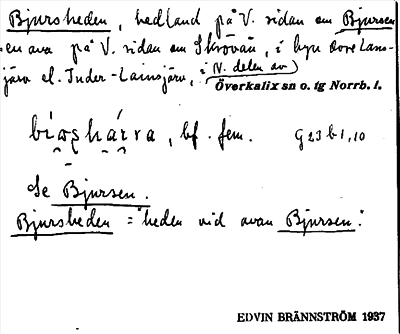 Bjursheden, hedland på V. sidan om Bjursen
en ava på V. sidan om Skrövån, i byn Övre Lans-
järv el. Inder-Lainsjärv, i N. delen av
Överkalix sn o. tg Norrb. l.
bf. fem. G 23 b 1, 10
Se Bjursen.
Bjursheden = "heden vid avan Bjursen".
EDVIN BRÄNNSTRÖM 1937